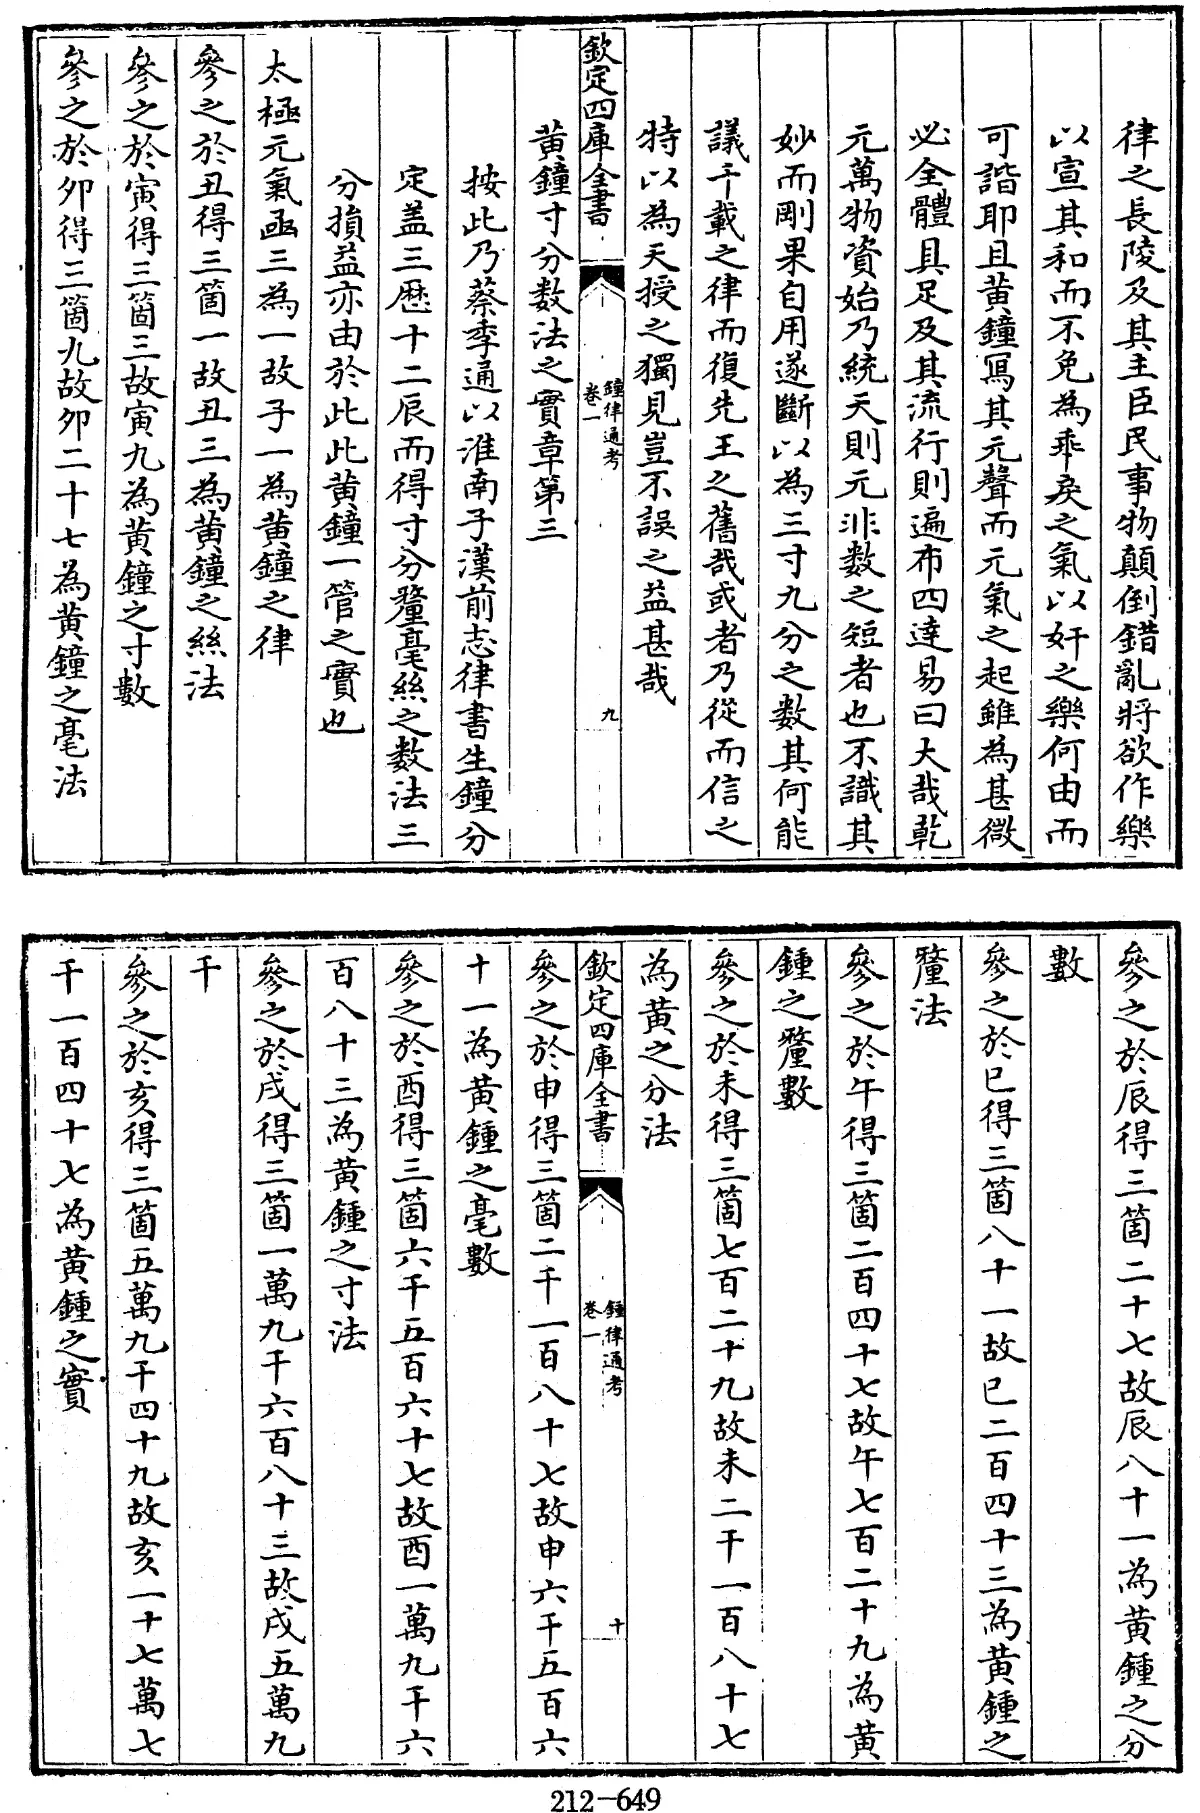 律之長陵及其主臣民事物顛倒錯亂將欲作樂
以宣其和而不免為乖戾之氣以奸之樂何由而
可諧耶且黃鐘寫其元聲而元氣之起雖為甚微
必全體具足及其流行則遍布四達易曰大哉乾
元萬物資始乃統天則元非數之短者也不識其
妙而剛果自用遂斷以為三寸九分之數其何能
議千載之律而復先王之舊哉或者乃從而信之
特以為天授之獨見豈不誤之益甚哉
欽定四庫全書
鐘律通考
卷一
九
黃鐘寸分數法之實章第三
按此乃蔡季通以淮南子漢前志律書生鐘分
定盖三歷十二辰而得寸分釐毫絲之數法三
分損益亦由於此此黃鐘一管之實也
太極元氣函三為一故子一為黃鐘之律
參之於丑得三箇一故丑三為黃鐘之絲法
參之於寅得三箇三故寅九為黃鐘之寸數
參之於卯得三箇九故卯二十七為黃鐘之毫法
參之於辰得三箇二十七故辰八十一為黃鍾之分
數
參之於巳得三箇八十一故巳二百四十三為黃鍾之
釐法
參之於午得三箇二百四十七故午七百二十九為黃
鍾之釐數
參之於未得三箇七百二十九故未二千一百八十七
為黃之分法
欽定四庫全書
鍾律通考
卷一
十
參之於申得三箇二千一百八十七故申六千五百六
十一為黃鍾之毫數
參之於酉得三箇六千五百六十七故酉一萬九千六
百八十三為黃鍾之寸法
參之於戌得三箇一萬九千六百八十三故戌五萬九
千
參之於亥得三箇五萬九千四十九故亥一十七萬七
千一百四十七為黃鍾之實
212-649